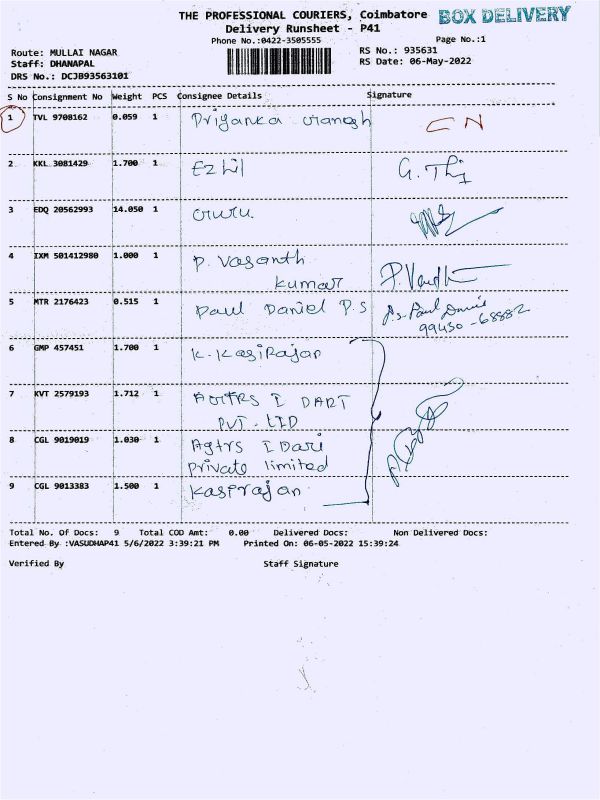 THE PROFESSIONAL COURIERS, Coimbatore BOX DELIVERY
Delivery Runsheet - P41
Phone No.:0422-3505555 Page No.:1
Route: MULLAI NAGAR RS No.: 935631
Staff: DHANAPAL RS Date: 06-May-2022
DRS No.: DCJB93563101
S No Consignment No Weight PCS Consignee Details Signature
1 TVL 9708162 0.059 1 Priyanka CN
2 KKL 3081429 1.700 1 Ezhil
3 EDQ 20562993 14.050 1
4 IXM 501412980 1.000 1 P. Vasanth
kumar
5 MTR 2176423 0.515 1 Paul Daniel P.S
99430-68882
6 GMP 457451 1.700 1 K. Kasirajan
7 KVT 2579193 1.712 1 I DART
PVT. LTD
8 CGL 9019019 1.030 1 Agtrs I Dart
private limited
9 CGL 9013383 1.500 1 Kasirajan
Total No. Of Docs: 9 Total COD Amt: 0.00 Delivered Docs: Non Delivered Docs:
Entered By :VASUDHAP41 5/6/2022 3:39:21 PM Printed On: 06-05-2022 15:39:24
Verified By Staff Signature